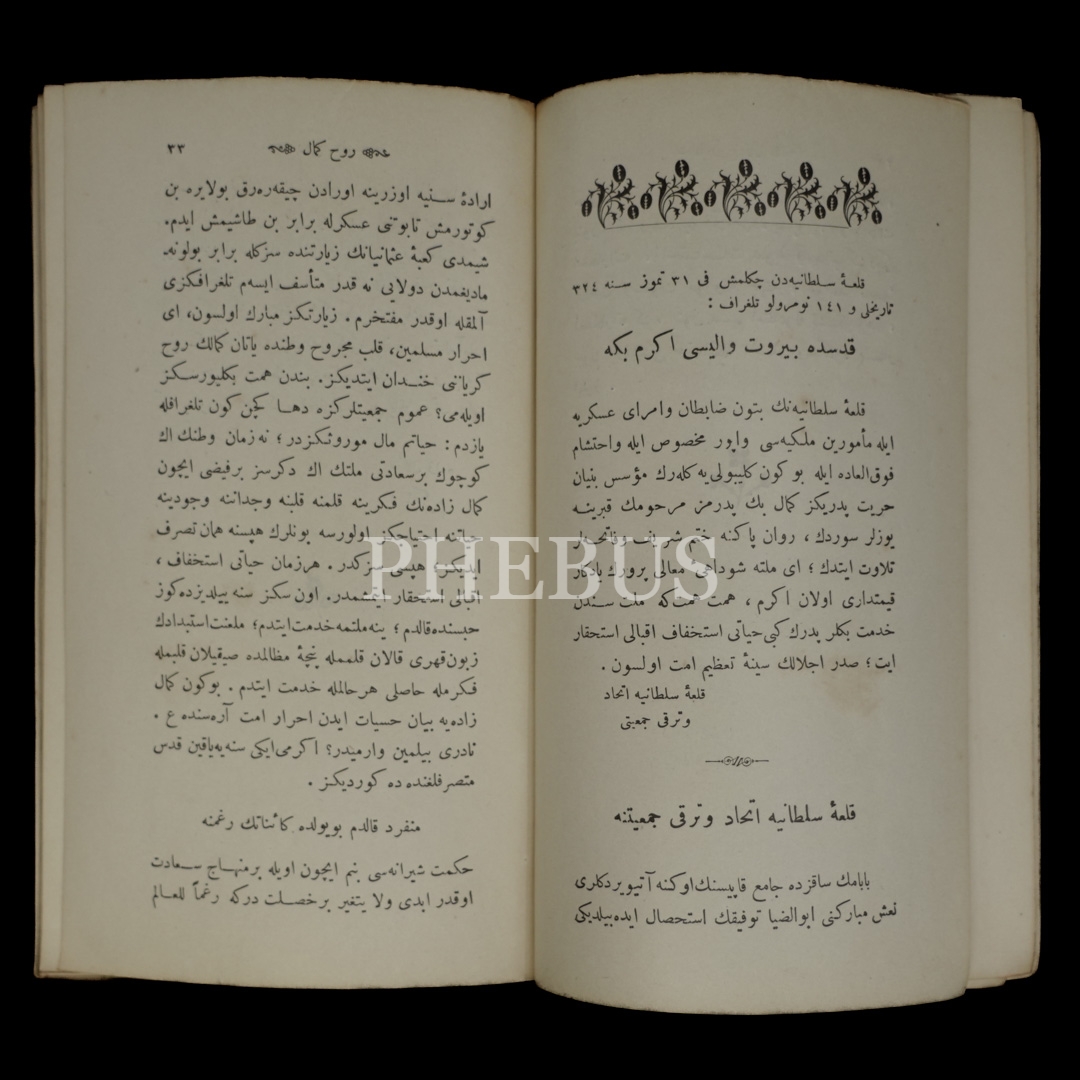 قلعهٔ سلطانیه‌دن چکلمش فی ٣١ تموز سنه ٣٢٤
تاریخلی و ١٤١ نومرولو تلغراف :
قدسده بیروت والیسی اکرم بکه
قلعهٔ سلطانیه‌نك بتون ضابطان وامرای عسکریه
ایله مأمورین ملکیه‌سی واپور مخصوص ایله واحتشام
فوق‌العاده ایله بو کون کلیبولی‌یه کله‌رك مؤسس بنیان
حریت پدریکز کمال بك پدرمز مرحومك قبرینه
یوزلر سوردك ، روان پاکنه ختم شریف وفاتحه‌لر
تلاوت ایتدك ؛ ای ملته شوداهیٔ معالی پرورك یادکار
قیمتداری اولان اکرم ، همت همت‌که ملت سندن
خدمت بکلر پدرك کبی حیاتی استخفاف اقبالی استحقار
ایت ؛ صدر اجلالك سینهٔ تعظیم امت اولسون .
قلعهٔ سلطانیه اتحاد
وترقی جمعیتی
قلعهٔ سلطانیه اتحاد وترقی جمعیتنه
بابامك ساقزده جامع قاپیسنك‌اوکنه آتیویردکلری
نعش مبارکنی ابوالضیا توفیقك استحصال ایده‌بیلدیکی
روح کمال ٣٣
ارادهٔ سنیه اوزرینه اورادن چیقه‌ره‌رق بولایره بن
کوتورمش تابوتنی عسکرله برابر بن طاشیمش ایدم.
شیمدی کعبهٔ عثمانیانك زیارتنده سزکله برابر بولونه‌ـ
مادیغمدن دولایی نه قدر متأسف ایسه‌م تلغرافکزی
آلمقله اوقدر مفتخرم . زیارتکز مبارك اولسون، ای
احرار مسلمین، قلب مجروح وطنده یاتان کمالك روح
کریاننی خندان ایتدیکز. بندن همت بکلیورسکز
اویله‌می؟ عموم جمعیتلرکزه دها کچن کون تلغرافله
یازدم : حیاتم مال موروثکزدر ؛ نه‌زمان وطنك اك
کوچوك برسعادتی ملتك اك دکرسز برفیضی ایچون
کمال زاده‌نك فکرینه قلمنه قلبنه وجداننه وجودینه
حیاتنه احتیاجکز اولورسه بونلرك هپسنه همان تصرف
ایدیکز، هپسی سزکدر . هرزمان حیاتی استخفاف ،
اقبالی استحقار ایتمشمدر. اون سکز سنه ییلدیزده‌کوز
حبسنده‌قالدم ؛ ینه‌ملتمه‌خدمت‌ایتدم؛ ملعنت‌استبدادك
زبون‌قهری قالان قلممله پنجهٔ مظالمده صیقیلان قلبمله
فکرمله حاصلی هرحالمله خدمت ایتدم . بوکون کمال
زاده‌یه بیان حسیات ایدن احرار امت آره‌سنده ع .
نادری بیلمین وارمیدر؟ اکرمی‌ایکی سنه‌یه‌یاقین قدس
متصرفلغنده ده کوردیکز .
منفرد قالدم بویولده کائناتك رغمنه
حکمت شیرانه‌سی بنم ایچون اویله برمنهاج سعادت
اوقدر ابدی ولا یتغیر برخصلت درکه رغماً للعالم
PHEBUS